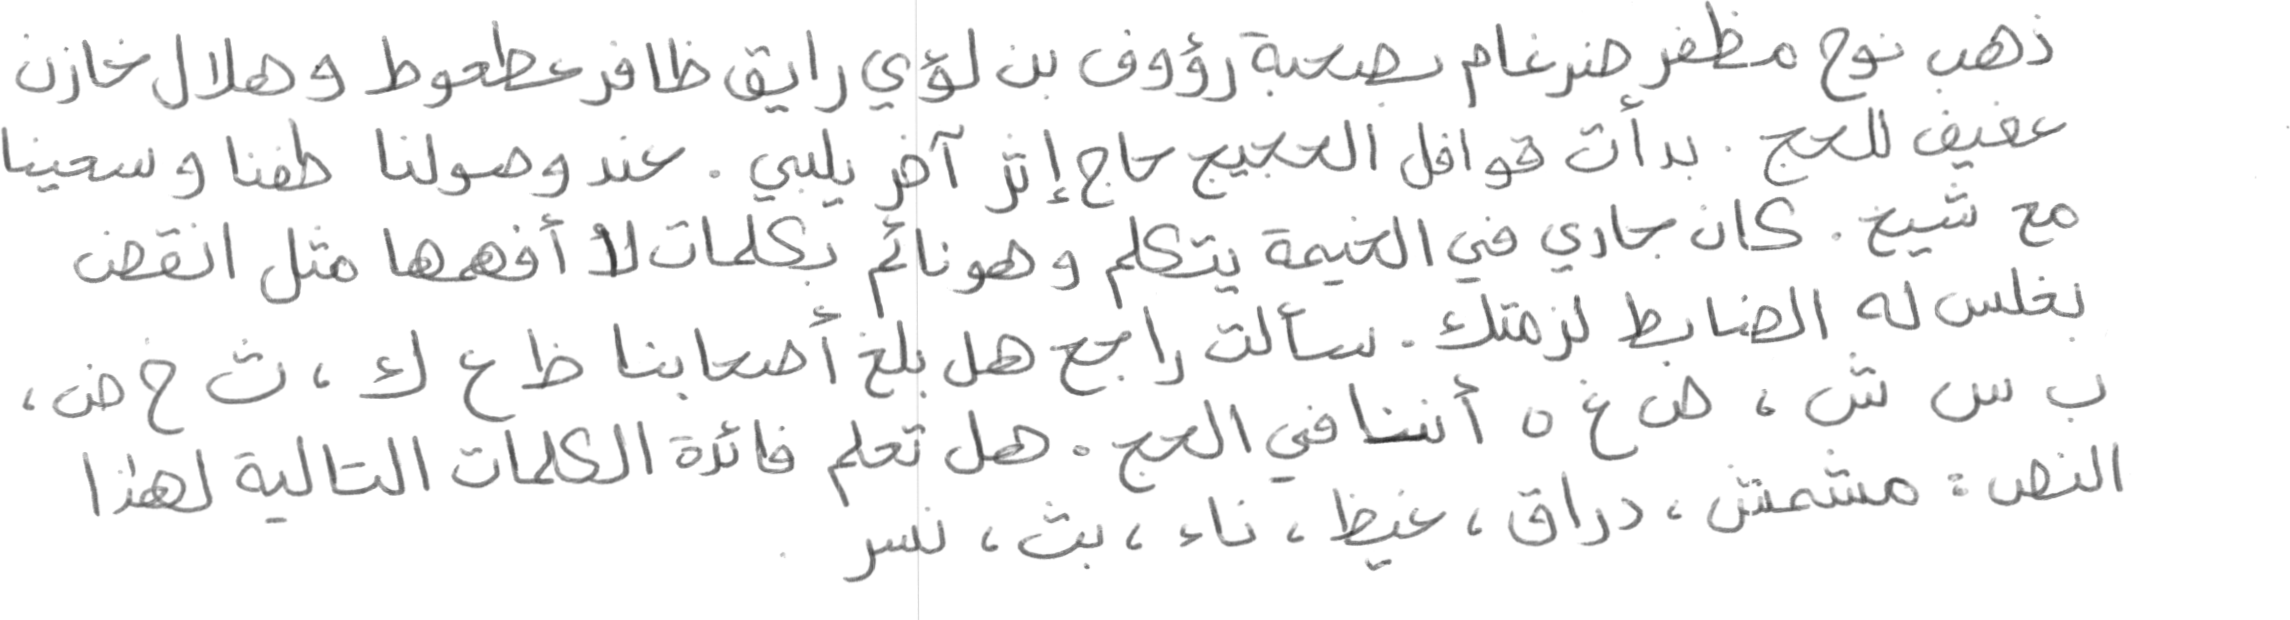 ذهب نوح مظفر ضرغام بصحبة رؤوف بن لؤي رايق ظافر عطعوط و هلال خازن
عفيف للحج . بدأت قوافل الحجيج حاج إثر آخر يلبي . عند وصولنا طفنا و سعينا
مع شيخ . كان جاري في الخيمة يتكلم وهو نائم بكلمات لا أفهمها مثل انقض
بغلس له الضابط لزمتك . سألت راجح هل بلغ أصحابنا ظ ع ك ، ث خ ض ،
ب س ش ، ض غ ه أننا في الحج . هل تعلم فائدة الكلمات التالية لهذا
النص : مشمش ، دراق ، غيظ ، ناء ، بث ، نسر